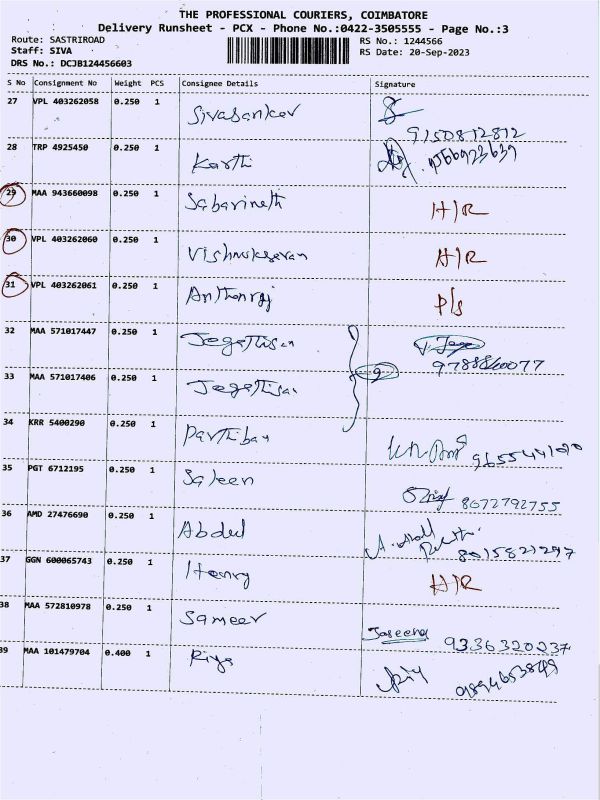 THE PROFESSIONAL COURIERS, COIMBATORE
Delivery Runsheet - PCX - Phone No.:0422-3505555 - Page No.:3
Route: SASTRIROAD RS No.: 1244566
Staff: SIVA RS Date: 20-Sep-2023
DRS No.: DCJB124456603
S No Consignment No Weight PCS Consignee Details Signature
27 VPL 403262058 0.250 1 Sivasanker
9150812812
28 TRP 4925450 0.250 1 Karthi
29 MAA 943660098 0.250 1 Sabarineth H/R
30 VPL 403262060 0.250 1 Vishnukesavan H/R
31 VPL 403262061 0.250 1 Anthonraj P/S
32 MAA 571017447 0.250 1 Jegathisan
33 MAA 571017406 0.250 1 Jegathisan
34 KRR 5400290 0.250 1 Parthiban
35 PGT 6712195 0.250 1 Saleen 8072792755
36 AMD 27476690 0.250 1 Abdul
8015821297
37 GGN 600065743 0.250 1 Henry H/R
38 MAA 572810978 0.250 1 Sameer Jaseena 9336320237
39 MAA 101479704 0.400 1 Riya